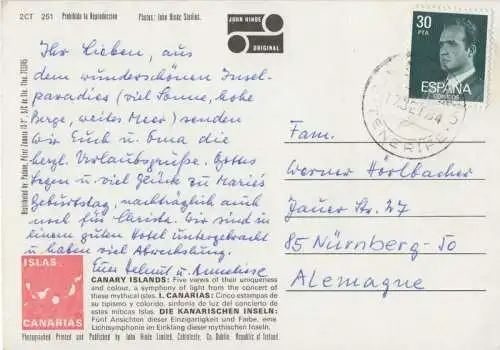 2CT 251 Prohibida la Reproduccion Photos: John Hinde Studios.
JOHN HINDE
ORIGINAL
30
PTA
ESPAÑA
CORREOS
TENERIFE
Ihr Lieben, aus
dem wunderschönen Insel-
paradies (viel Sonne, hohe
Berge, weites Meer) senden
wir Euch u. Oma die
herzl. Urlaubsgrüße. Gottes
Segen u. viel Glück zu Mariés
Geburtstag, nachträglich auch
noch für Christa. Wir sind in
einem guten Hotel untergebracht
u. haben viel Abwechslung.
Eure Helmut u. Anneliese
Fam.
Werner Hörlbacher
Jauer Str. 27
85 Nürnberg-50
Alemagne
ISLAS
CANARIAS
CANARY ISLANDS: Five views of their uniqueness
and colour, a symphony of light from the concert of
these mythical isles. I. CANARIAS: Cinco estampas de
su tipismo y colorido. sinfonia de luz del concierto de
estas míticas Islas. DIE KANARISCHEN INSELN:
Fünf Ansichten dieser Einzigartigkeit und Farbe, eine
Lichtsymphonie im Einklang dieser mythischen Inseln.
Photographed Printed and Published by John Hinde Limited, Cabinteely, Co. Dublin, Republic of Ireland